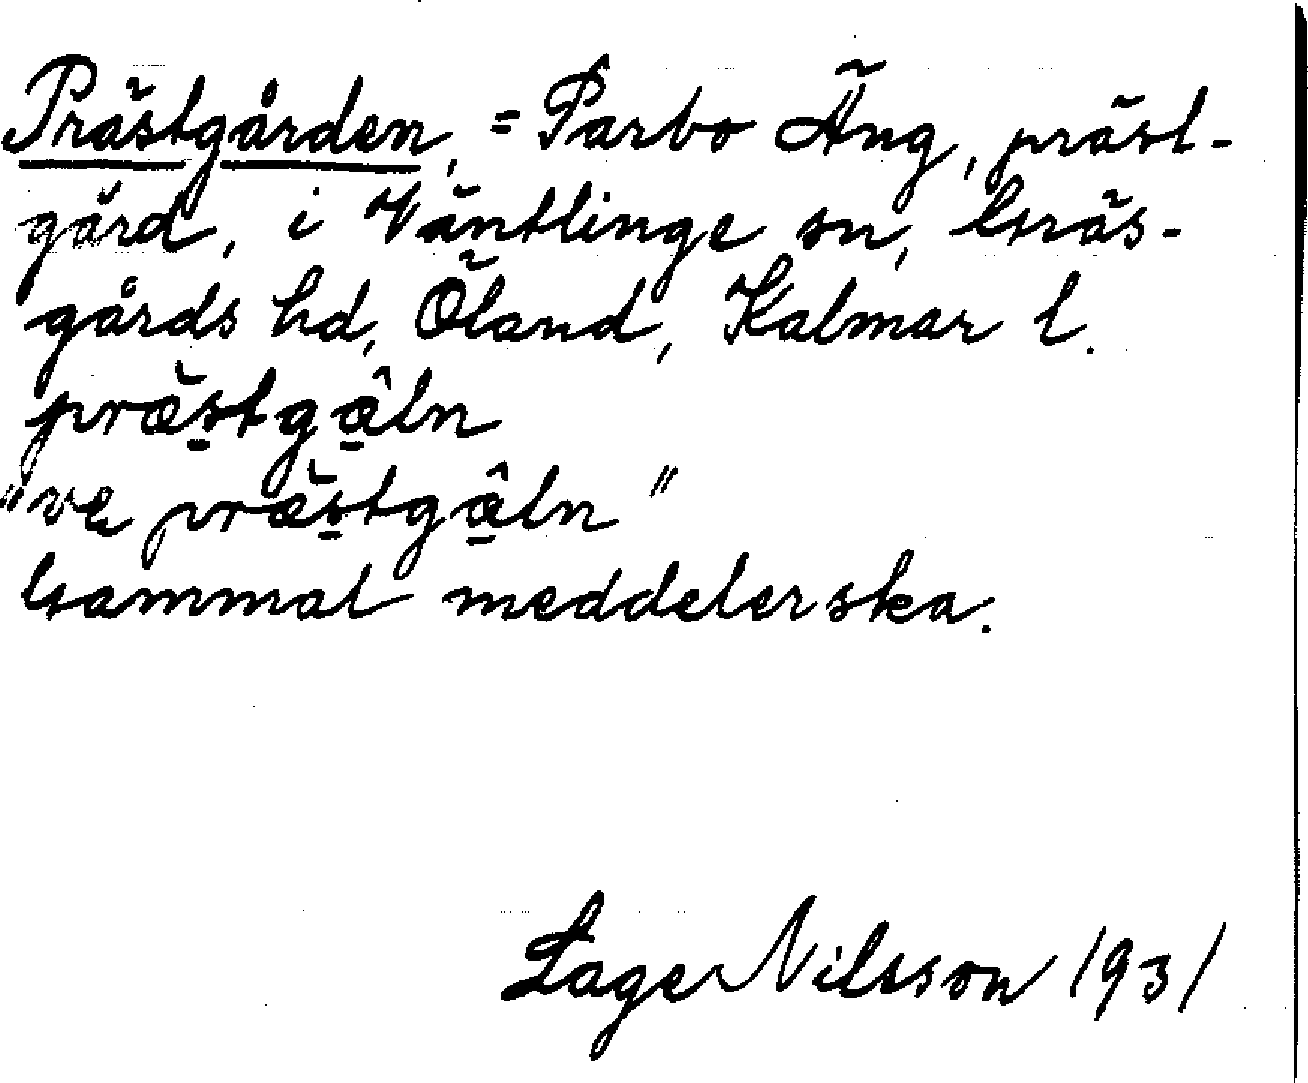 Prästgården, = Parbo Äng, präst-
gård, i Väntlinge sn, Gräs-
gårds hd, Öland, Kalmar l.
præ̆s̱tgæ̱̂ln
"ve præ̆s̱tgæ̱̂ln"
Gammal meddelerska.
Lage Nilsson 1931